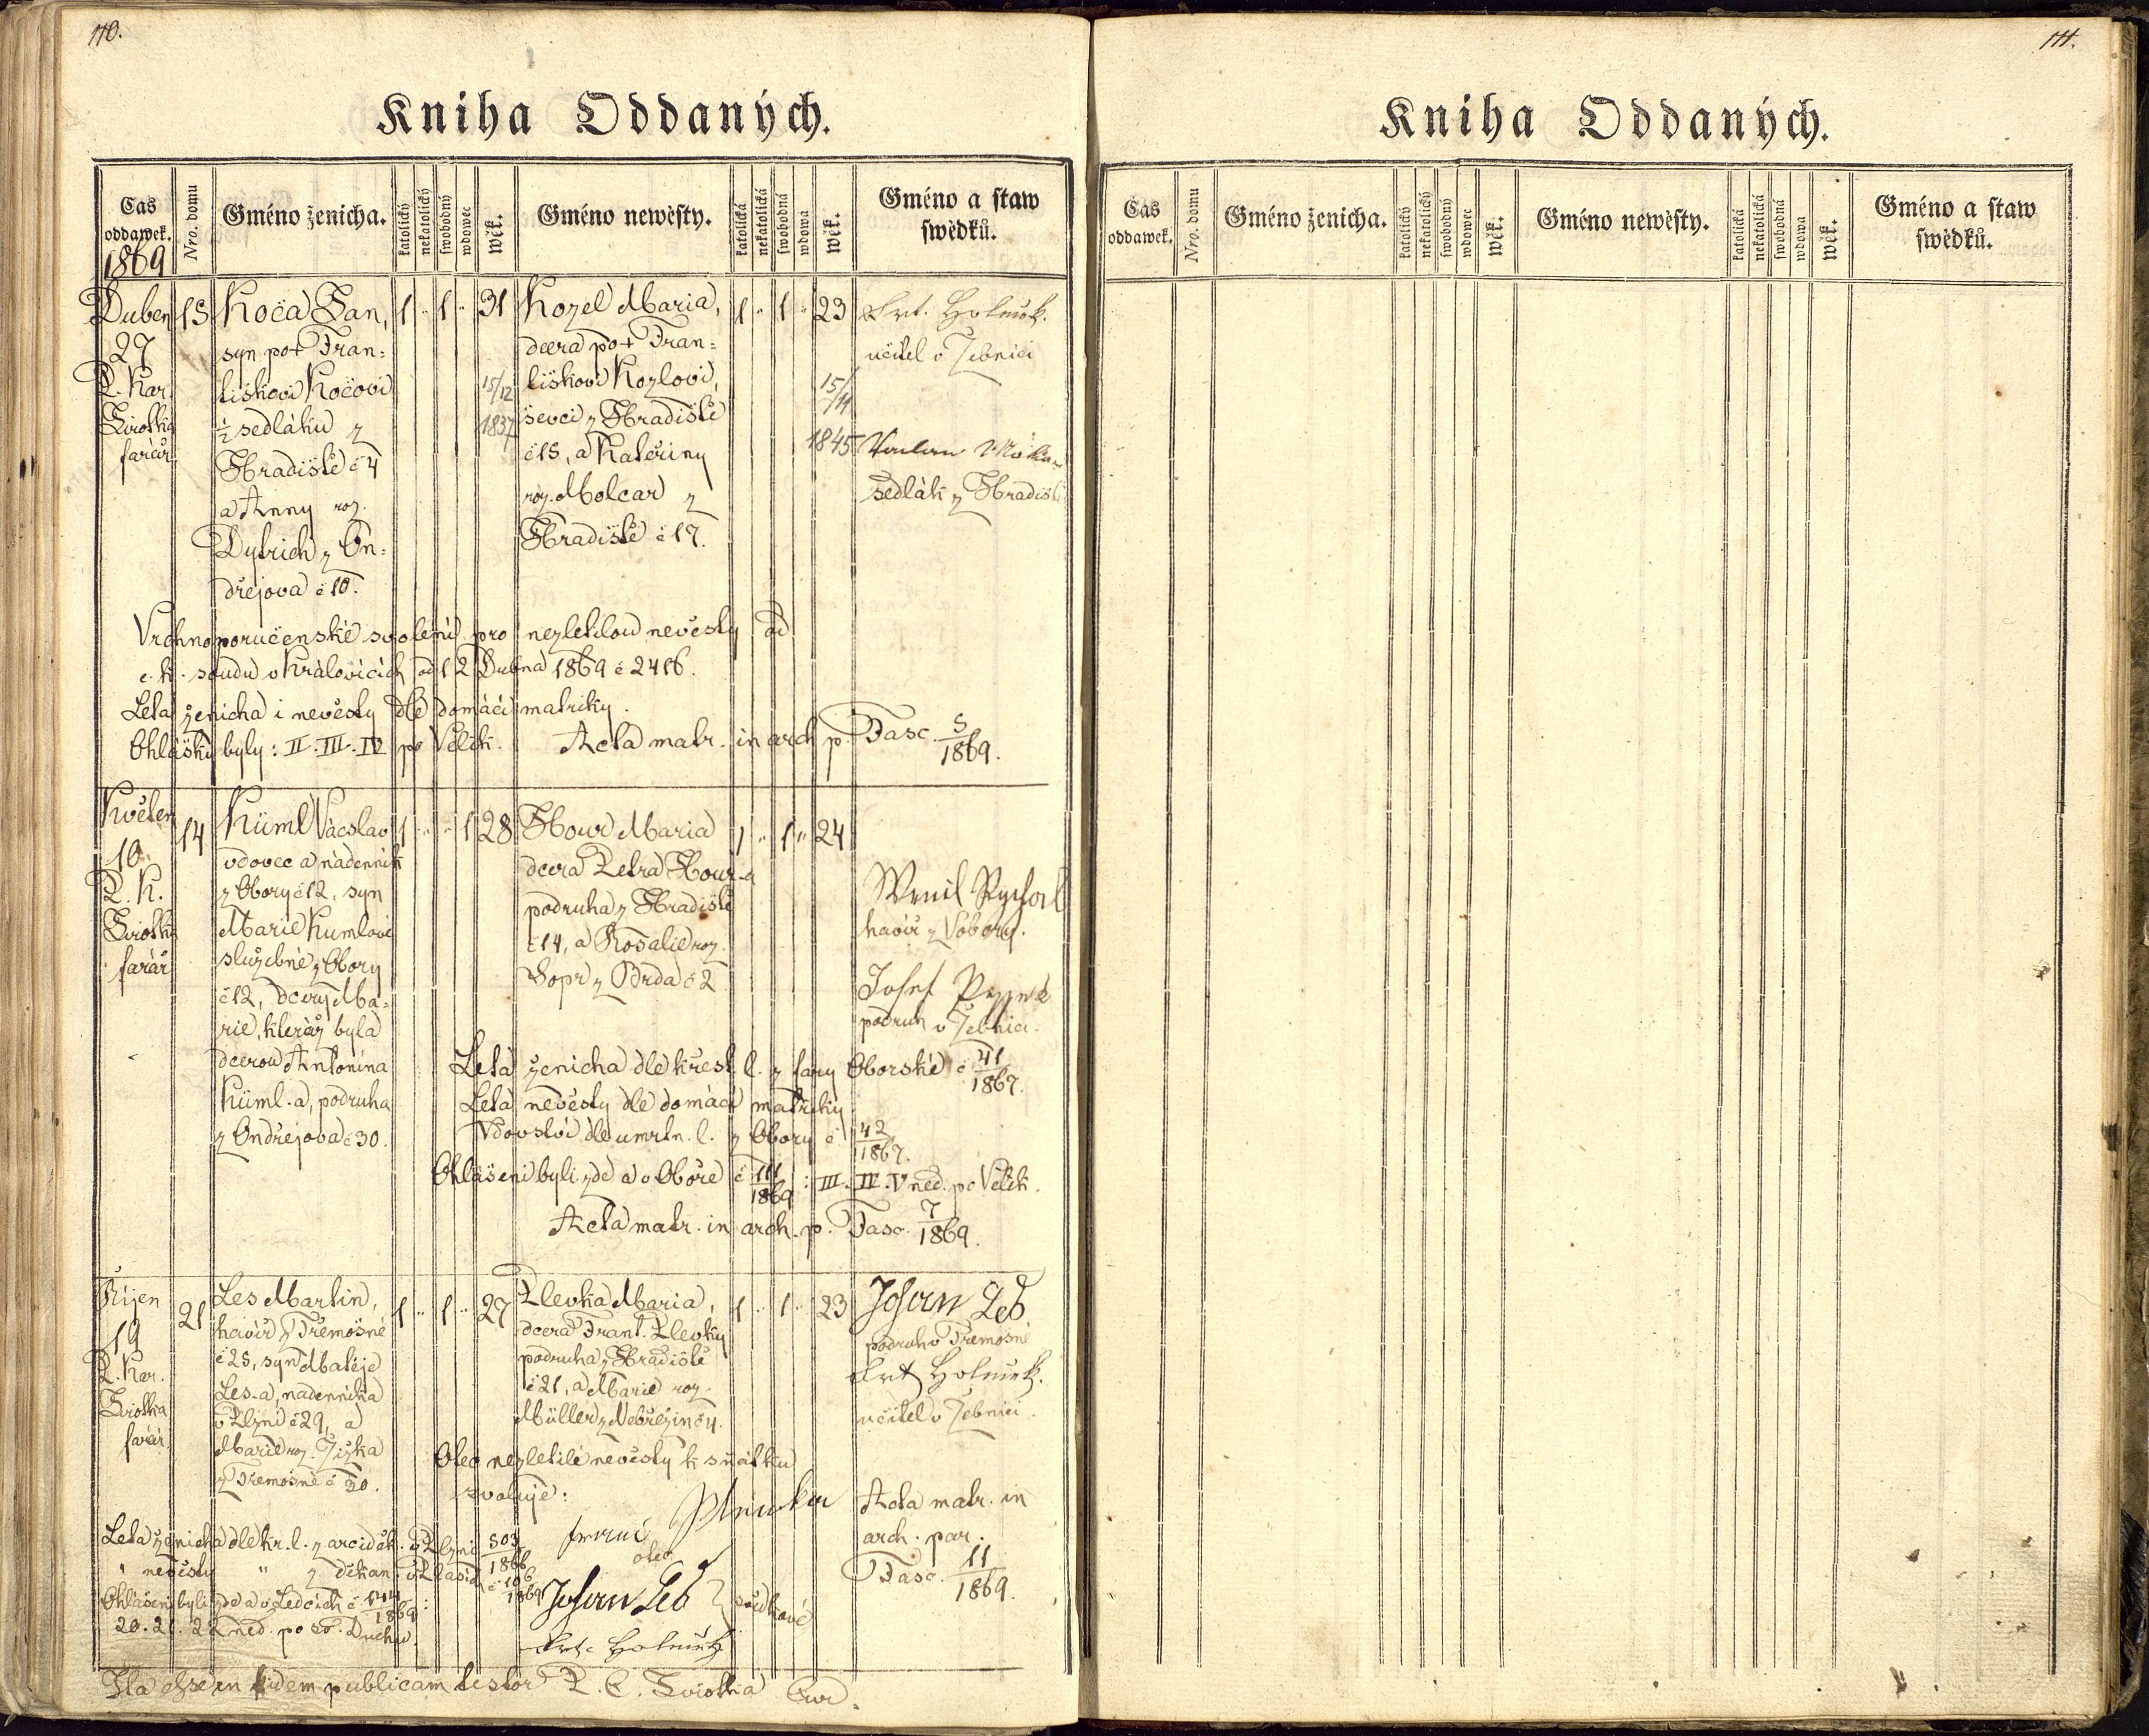 110.
Kniha Oddaných.
Čas oddawek.
1869
Nro. domu
Gméno ženicha.
katolický
nekatolický
swobodný
wdowec
wěk.
Gméno newěsty.
katolická
nekatolická
swobodná
wdowa
wěk.
Gméno a staw swědků.
Duben
27
P. Kar.
farář
15
Koča Jan,
syn po † Fran=
tiškovi Kočovi
½ sedláku z
Hradiště č 4
a Anny roz.
Dytrich z On=
dřejova č 10.
1 " 1 "
31
15/12
1837
Kozel Maria,
dcera po † Fran=
tiškovi Kozlovi,
ševci z Hradiště
č 15, a Kateřiny
roz. Molcar z
Hradiště č 17.
1 " 1 "
23
15/11
1845
Frt. Holeček.
učitel v Žebnici
sedlák z Hradiště
Vrchnoporučenské svolení pro nezletilou nevěstu od
c. k. soudu v Královicích od 12 Dubna 1869 č 2416.
Leta ženicha i nevěsty dle domácí matriky.
Ohlášky byly: II. III. IV po Velik. Acta matr. in arch p. Fasc. 5/1869.
Květen
10
P. K.
farář
14
Küml Vácslav
vdovec a nádenník
z Obory č 12, syn
Marie Kumlové
služebné z Obory
č 12, dcery Ma=
rie, kteráž byla
dcerou Antonína
Küml-a, podruha
z Ondřejova č 30.
1 " " 1
28
Hour Maria
dcera Petra Hour-a
podruha z Hradiště
č 14, a Rosalie roz.
Sopr z Brda č 2.
1 " 1 "
24
havíř z Vobory.
Josef
podruh v Žebnici.
Leta ženicha dle křest. l. z fary Oborské č 41/1867.
Leta nevěsty dle domácí matriky
Vdovství dle umrtn. l. z Obory č 42/1867.
Ohlášeni byli zde a v Oboře č 111/1869: III. IV. V ned. po Velik.
Acta matr. in arch. p. Fasc. 7/1869.
Říjen
19
P. Kar.
farář
21
Les Martin,
havíř z Třemošné
č 25, syn Matěje
Les-a, nadenníka
v Plzni č 29, a
Marie roz. Žižka
z Třemošné č 30.
1 " 1 "
27
Plevka Maria,
dcera Frant. Plevky
podruha z Hradiště
č 21, a Marie roz.
Müller z Nebřezin č 4.
1 " 1 "
23
Johan Leb
podruh v Třemošné
Frt. Holeček.
učitel v Žebnici
Otec nezletilé nevěsty k sňatku
svoluje:
otec
Johan Leb
Frt. Holeček
svědkové
Acta matr. in
arch. par.
Fasc. 11/1869.
Leta ženicha dle kr. l. z arciděk. v Plzni 503/1866
" nevěsty " z děkan. v Plasích č 106/1869
Ohlášeni byli zde a v Ledcích č
20. 21. 22 ned. po sv. Duchu.
Ita esse in fidem publicam testor P. C.
111.
Kniha Oddaných.
Čas oddawek.
Nro. domu
Gméno ženicha.
katolický
nekatolický
swobodný
wdowec
wěk.
Gméno newěsty.
katolická
nekatolická
swobodná
wdowa
wěk.
Gméno a staw swědků.